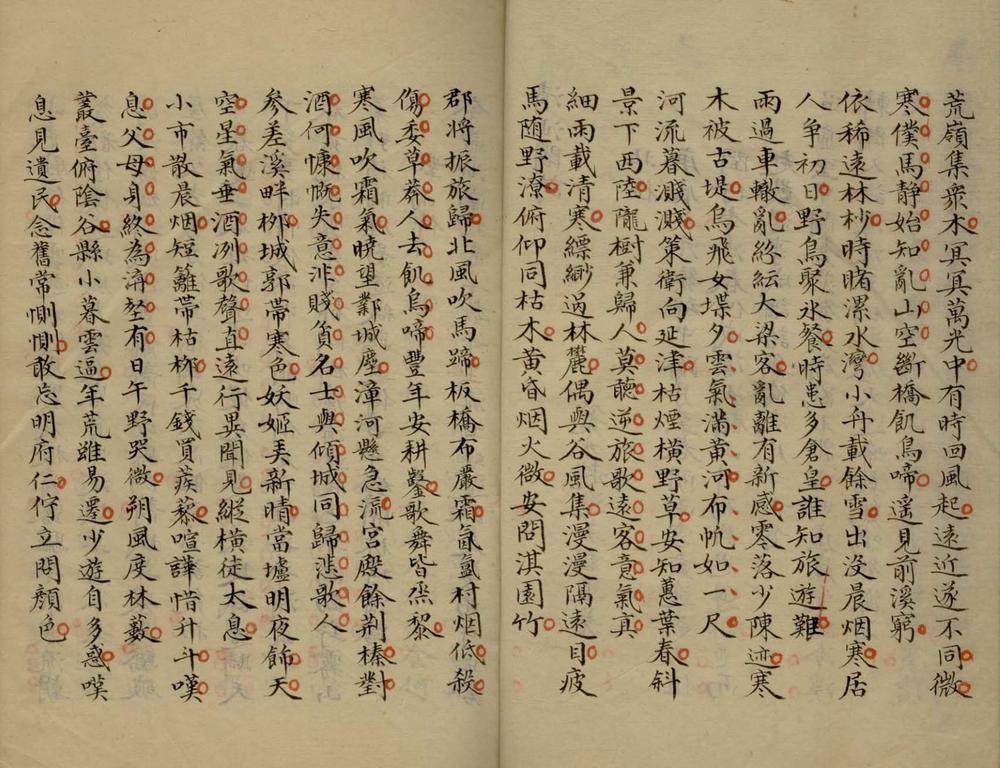 荒嶺集衆木冥冥萬光中有時回風起遠近遂不同微
寒僕馬静始知亂山空斷橋飢鳥啼遥見前溪窮
依稀遠林杪時睹漯水灣小舟載餘雪出没晨烟寒居
人争初日野鳥聚氷餐時患多倉皇誰知旅遊難
雨過車轍亂紛紜大梁客亂離有新感零落少陳迹寒
木被古堤烏飛女堞夕雲氣滿黄河布帆如一尺
河流暮濺濺策衛向延津枯煙横野草安知蕙葉春斜
景下西陸隴樹兼歸人莫聽逆旅歌遠客意氣真
細雨載清寒縹緲過林麓偶與谷風集漫漫隔遠目疲
馬随野潦俯仰同枯木黄昏烟火微安問淇園竹
郡将振旅歸北風吹馬蹄板橋布嚴霜氤氲村烟低殺
傷委草莽人去飢烏啼豐年安耕鑿歌舞皆烝黎
寒風吹霜氣曉望鄴城塵漳河懸急流宮殿餘荆榛對
酒何慷慨失意非賤貧名士與傾城同歸悲歌人
参差溪畔栁城郭帯寒色妖姬美新晴當壚明夜飾天
空星氣垂酒冽歌聲直遠行異聞見縱横徒太息
小市散晨烟短籬帯枯栁千錢買蒺藜喧譁惜升斗嘆
息父母身終為溝壑有日午野哭微朔風度林藪
叢臺俯陰谷縣小暮雲逼年荒雖易遷少遊自多惑嘆
息見遺民念舊常惻惻敢忘明府仁佇立問顔色